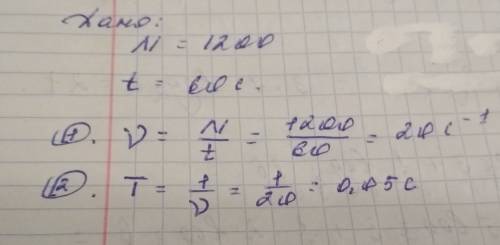 Дано:
N = 1200
t = 60 с.
1. ν = N/t = 1200/60 = 20 с⁻¹
2. T = 1/ν = 1/20 = 0,05 с